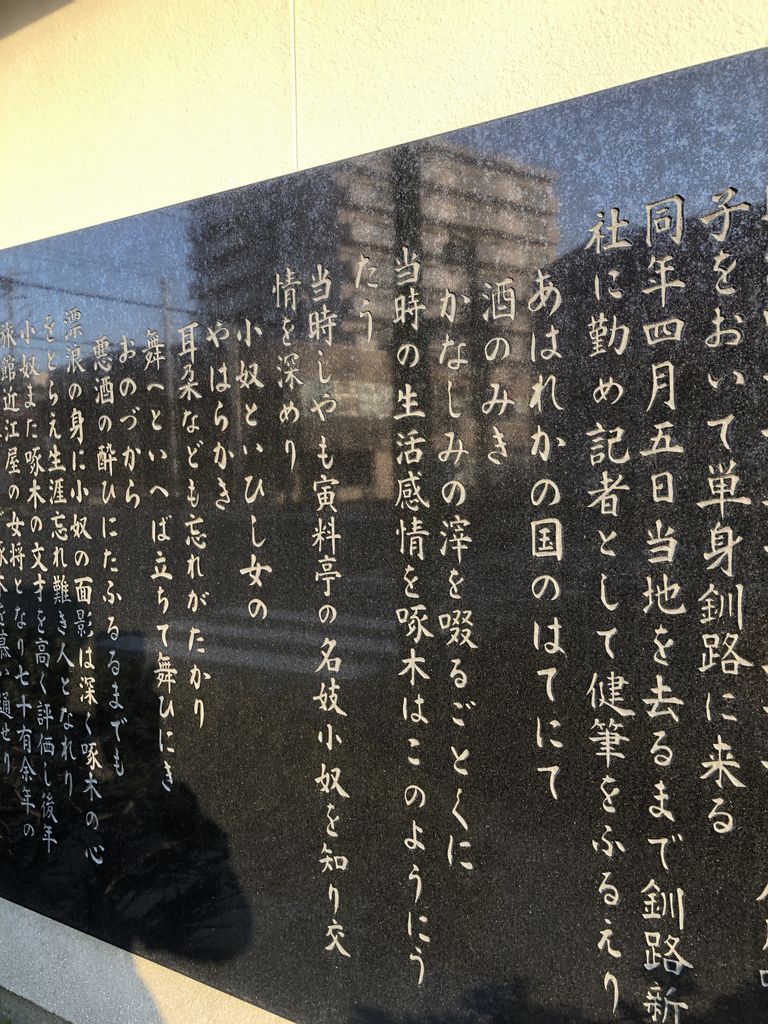 子をおいて単身釧路に来る
同年四月五日当地を去るまで釧路新
社に勤め記者として健筆をふるえり
あはれかの国のはてにて
酒のみき
かなしみの滓を啜るごとくに
当時の生活感情を啄木はこのようにう
たう
当時しやも寅料亭の名妓小奴を知り交
情を深めり
小奴といひし女の
やはらかき
耳朶なども忘れがたかり
舞へといへば立ちて舞ひにき
おのづから
悪酒の酔ひにたふるるまでも
漂浪の身に小奴の面影は深く啄木の心
をとらえ生涯忘れ難き人となれり
小奴また啄木の文才を高く評価し後年
旅館近江屋の女将となり七十有余年の
啄木を慕い通せり